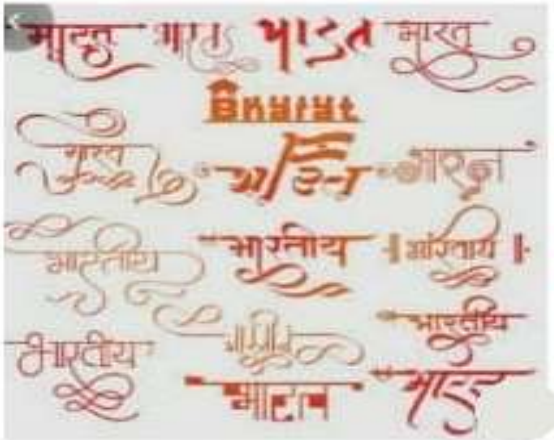 भारत भारत भारत भारत
Bharat
भारत भारत भारत
भारतीय भारतीय भारतीय
भारतीय
भारतीय भारतीय
भारत भारत